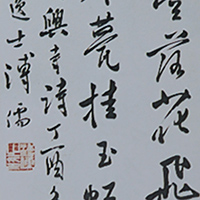 落花飛
甍挂玉虹
興寺詩丁酉
逸士溥儒